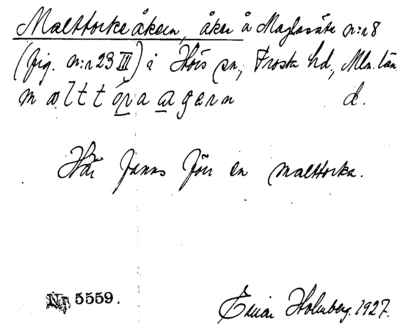 Malttorkeåkern, åker å Maglasäte n:r 8
(fig. n:r 23 III) i Hörs sn, Frosta hd, Mlm. län
d.
Här fanns förr en malttorka.
Nr 5559.
Einar Holmberg. 1927.